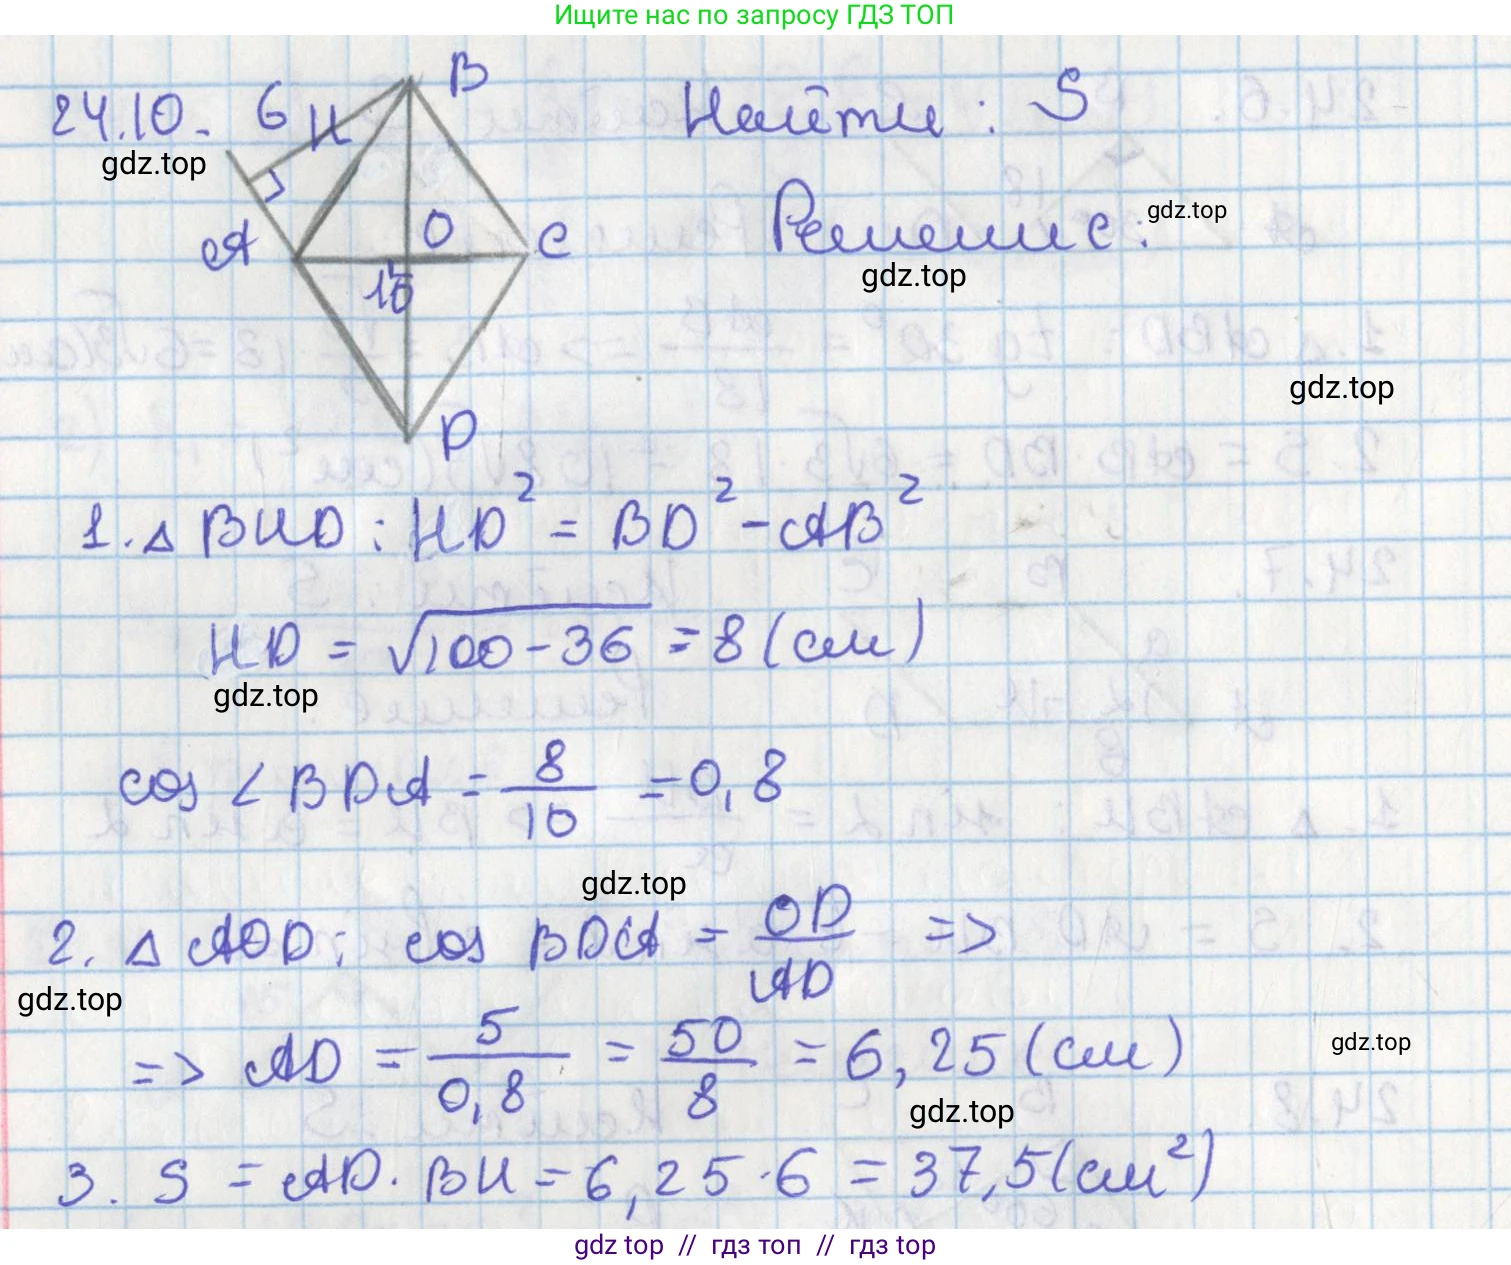 Ищите нас по запросу ГДЗ ТОП
24.10. 6 H B Найти: S
gdz.top
A O C Решение: gdz.top
10 gdz.top
gdz.top
D
1. △ BHD: HD² = BD² - AB²
HD = √100-36 = 8 (см)
gdz.top
cos ∠BDA = 8/10 = 0,8
gdz.top
2. △ AOD: cos BDA = OD/AD =>
gdz.top
=> AD = 5/0,8 = 50/8 = 6,25 (см)
gdz.top
gdz.top
3. S = AD · BH = 6,25 · 6 = 37,5 (см²)
gdz top // гдз топ // гдз top